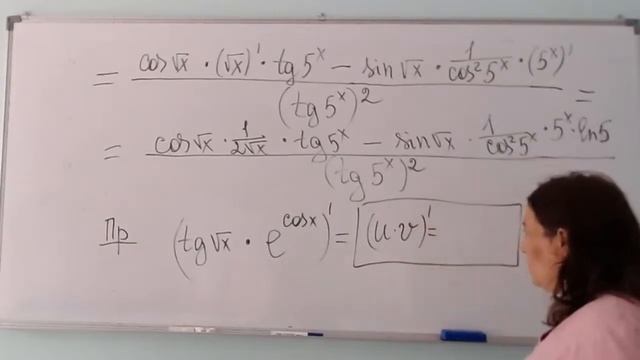 = \frac{\cos\sqrt{x} \cdot (\sqrt{x})' \cdot tg 5^x - \sin\sqrt{x} \cdot \frac{1}{\cos^2 5^x} \cdot (5^x)'}{(tg 5^x)^2} =
= \frac{\cos\sqrt{x} \cdot \frac{1}{2\sqrt{x}} \cdot tg 5^x - \sin\sqrt{x} \cdot \frac{1}{\cos^2 5^x} \cdot 5^x \cdot \ln 5}{(tg 5^x)^2}
Пр (tg\sqrt{x} \cdot e^{\cos x})' = (u \cdot v)' =